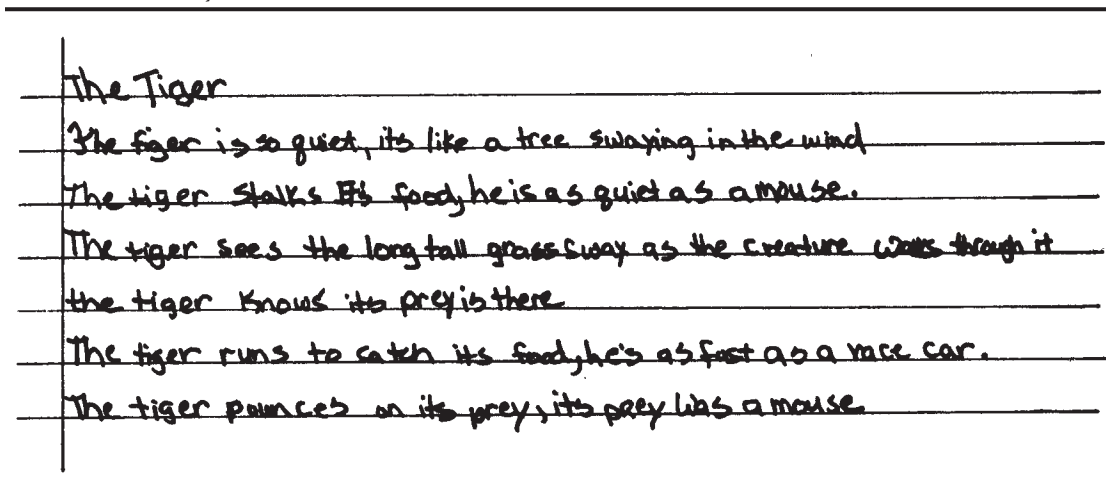 The Tiger
The tiger is so quiet, its like a tree swaying in the wind
The tiger stalks Its food, he is as quiet as a mouse.
The tiger sees the long tall grass sway as the creature walks through it
the tiger knows its prey is there
The tiger runs to catch its food, he's as fast as a race car.
The tiger pounces on its prey, its prey was a mouse